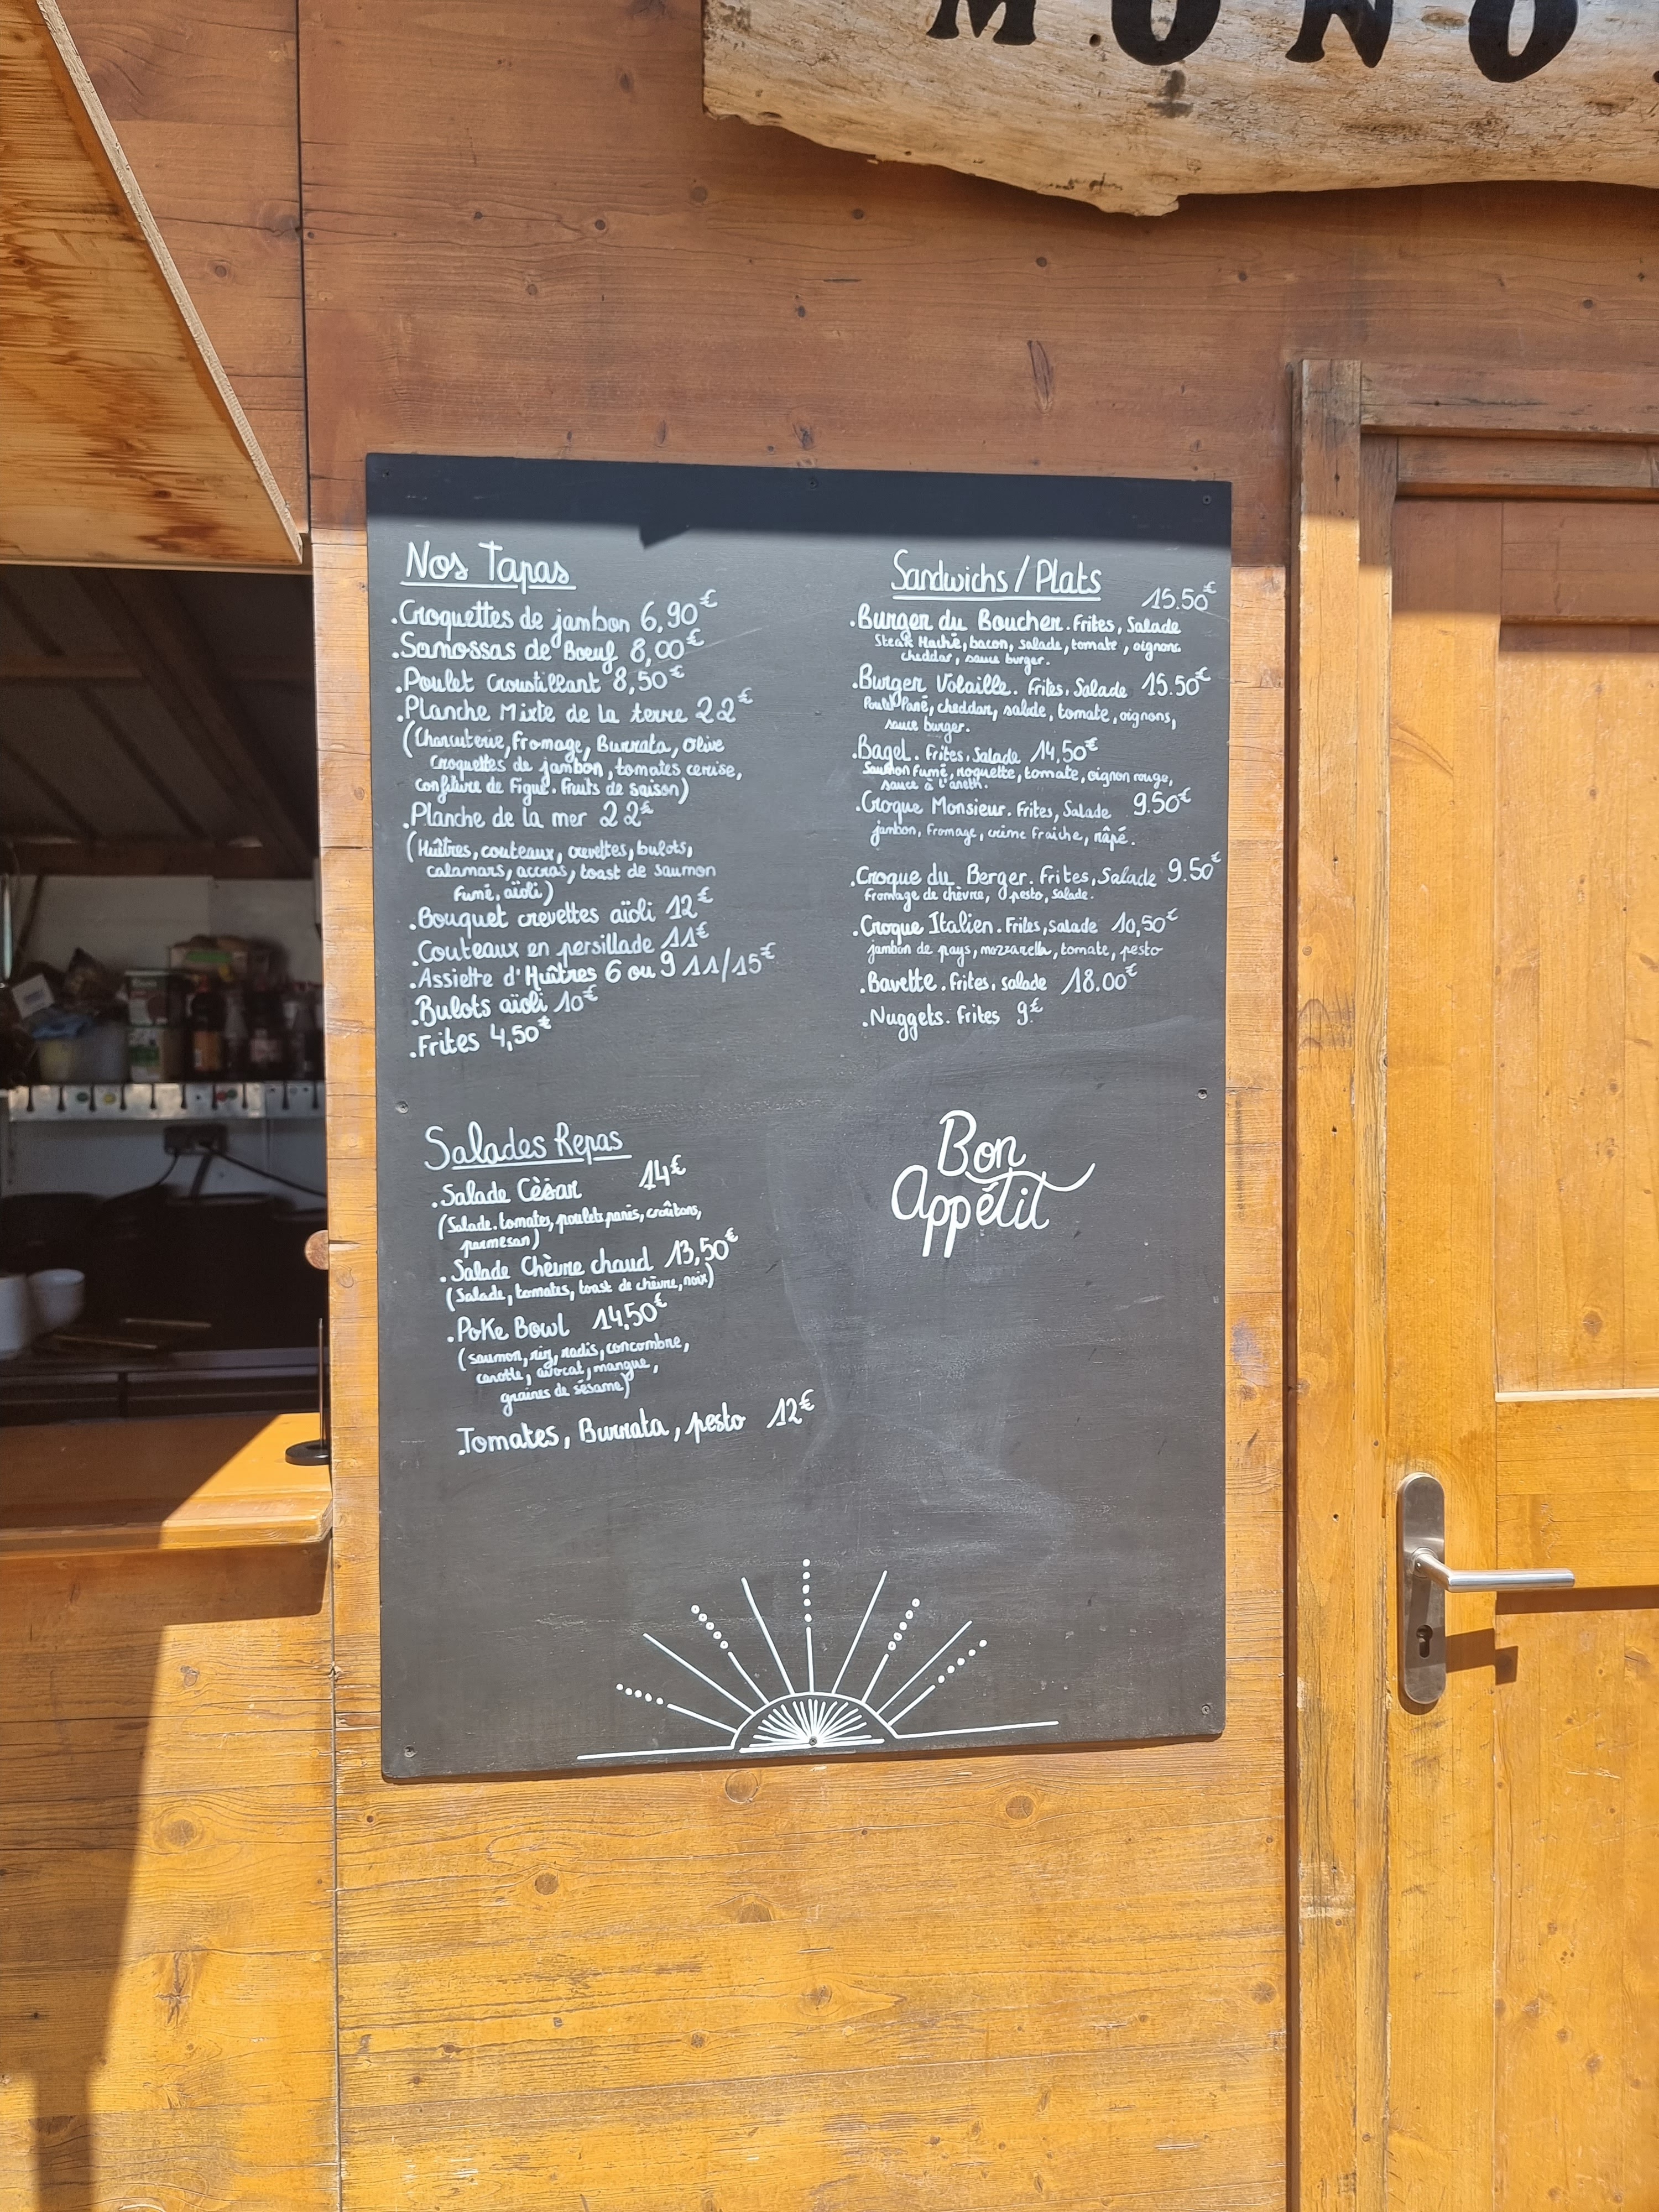 MONO
Nos Tapas
.Croquettes de jambon 6,90€
.Samossas de Boeuf 8,00€
.Poulet Croustillant 8,50€
.Planche Mixte de la terre 22€
(Charcuterie, Fromage, Burrata, Olive
Croquettes de jambon, tomates cerise,
confiture de Figue. Fruits de saison)
.Planche de la mer 22€
(Huîtres, couteaux, crevettes, bulots,
calamars, accras, toast de saumon
fumé, aïoli)
.Bouquet crevettes aïoli 12€
.Couteaux en persillade 11€
.Assiette d'Huîtres 6 ou 9 11/15€
.Bulots aïoli 10€
.Frites 4,50€
Salades Repas
.Salade Cèsar 14€
(Salade. tomates, poulets panés, croûtons,
parmesan)
.Salade Chèvre chaud 13,50€
(Salade, tomates, toast de chèvre, noix)
.Poke Bowl 14,50€
(saumon, riz, radis, concombre,
carotte, avocat, mangue,
graines de sésame)
.Tomates, Burrata, pesto 12€
Sandwichs / Plats
15.50€
.Burger du Boucher. Frites, Salade
Steak Haché, bacon, salade, tomate, oignons
cheddar, sauce burger.
.Burger Volaille. Frites, Salade 15.50€
Poulet Pané, cheddar, salade, tomate, oignons,
sauce burger.
.Bagel. Frites, Salade 14,50€
Saumon Fumé, roquette, tomate, oignon rouge,
sauce à l'aneth.
.Croque Monsieur. Frites, Salade 9.50€
jambon, fromage, crème fraîche, râpé.
.Croque du Berger. Frites, Salade 9.50€
Fromage de chèvre, pesto, salade.
.Croque Italien. Frites, salade 10,50€
jambon de pays, mozzarella, tomate, pesto
.Bavette. Frites, salade 18.00€
.Nuggets. Frites 9€
Bon
Appétit